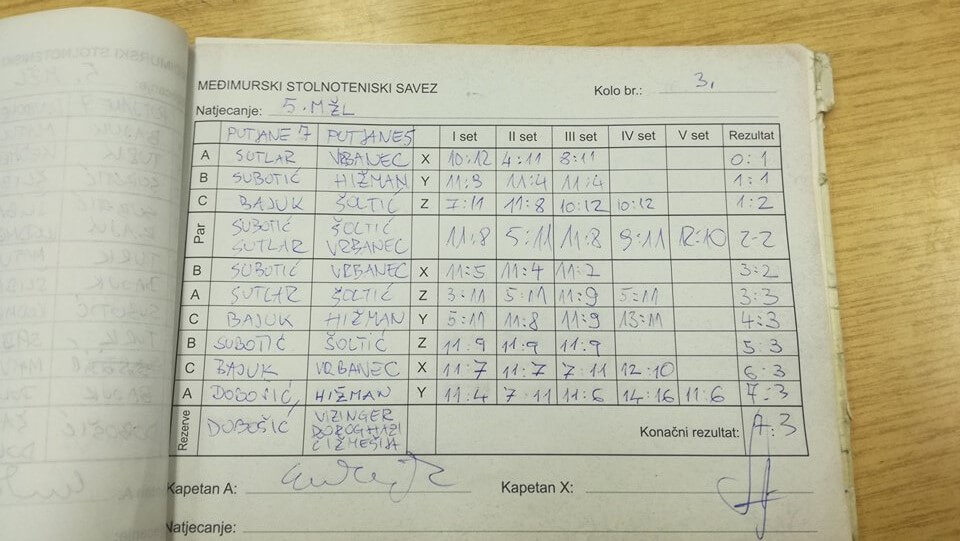 MEĐIMURSKI STOLNOTENISKI SAVEZ
Kolo br.: 3.
Natjecanje: 5. MŽL
PUTJANE 7 PUTJANE 5 I set II set III set IV set V set Rezultat
A SUTLAR VRBANEC X 10:12 4:11 8:11 0:1
B SUBOTIĆ HIŽMAN Y 11:9 11:4 11:4 1:1
C BAJUK ŠOLTIĆ Z 7:11 11:8 10:12 10:12 1:2
Par SUBOTIĆ SUTLAR ŠOLTIĆ VRBANEC 11:8 5:11 11:8 9:11 12:10 2-2
B SUBOTIĆ VRBANEC X 11:5 11:4 11:2 3:2
A SUTLAR ŠOLTIĆ Z 3:11 5:11 11:9 5:11 3:3
C BAJUK HIŽMAN Y 5:11 11:8 11:9 13:11 4:3
B SUBOTIĆ ŠOLTIĆ Z 11:9 11:9 11:9 5:3
C BAJUK VRBANEC X 11:7 11:7 7:11 12:10 6:3
A DOBOŠIĆ, HIŽMAN Y 11:4 7:11 11:6 14:16 11:6 7:3
Rezerve DOBOŠIĆ VIZINGER
DOROGHAZI
ČIŽMEŠIJA
Konačni rezultat: 7:3
Kapetan A: Kapetan X:
Natjecanje: